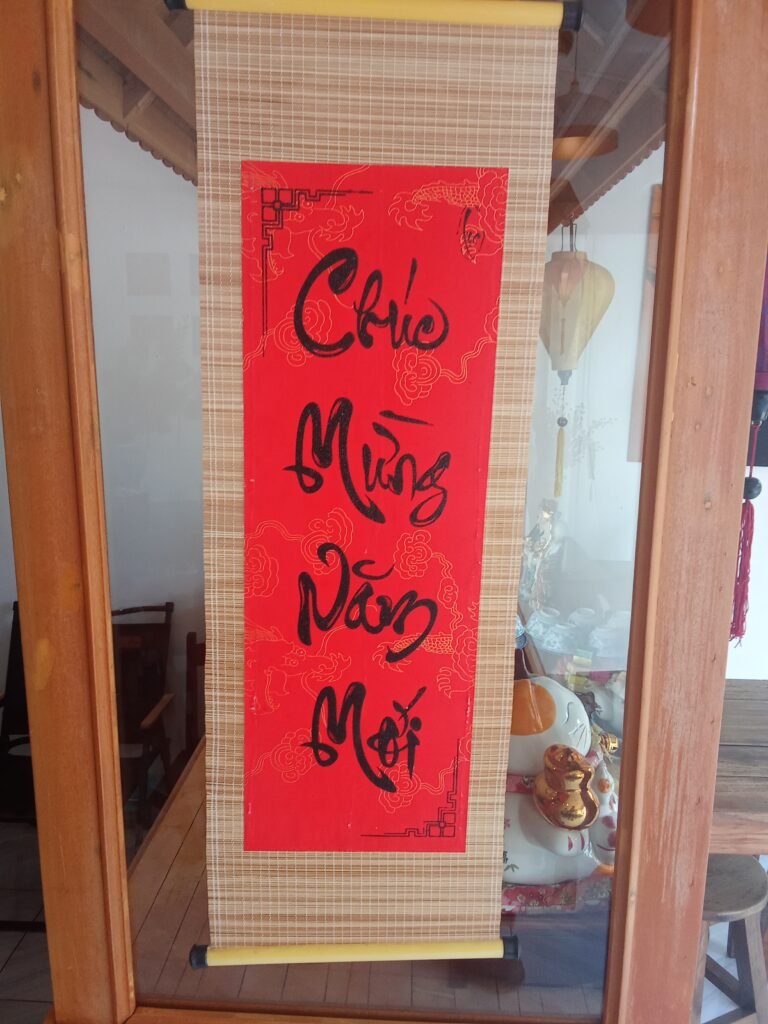 Chúc
Mừng
Năm
Mới